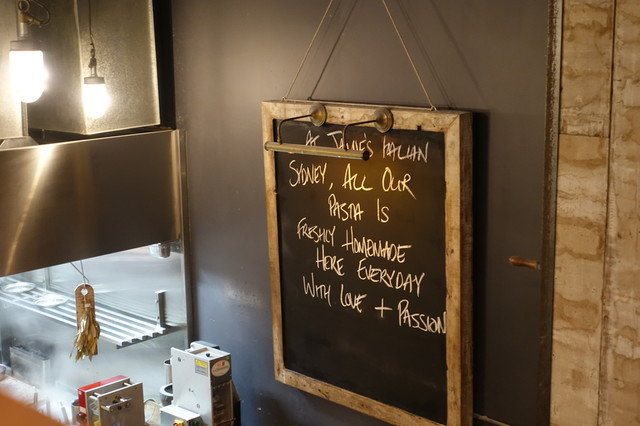 At Jamie's Italian
Sydney, All Our
Pasta Is
Freshly Homemade
Here Everyday
With Love + Passion